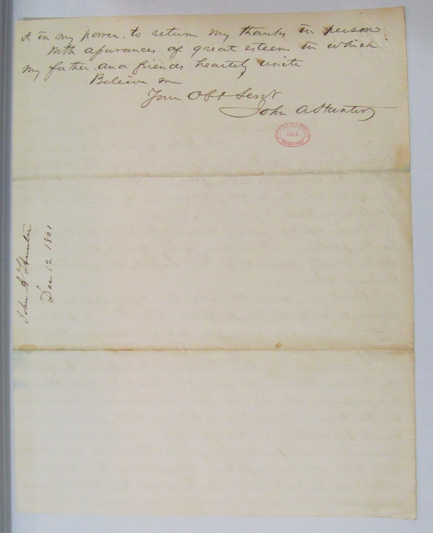 it in my power, to return my thanks in person.
With assurances of great esteem in which
my father and friends heartily unite
Believe me
Your Obt Servt
John A Hunter
John A Hunter
Dec 12 1861